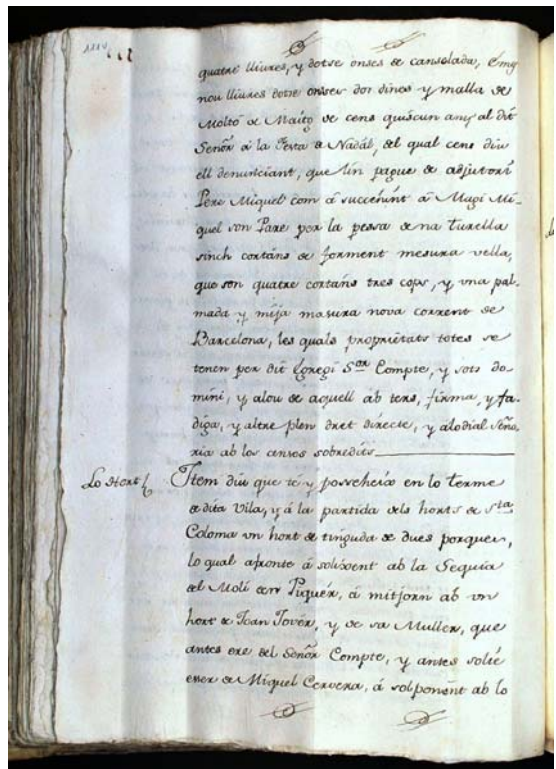 quatre lliures, y dotse onses de cansalada, é mij
nou lliures dotse onses dos dines y malla de
Moltó de Maitg de cens quiscun any al dit
Señor á la Festa de Nadál, del qual cens diu
ell denunciant, que lin pague de adjutori
Pere Miquel com á succehint á Magi Mi-
quel son Pare per la pessa de na Turella
sinch cortáns de forment mesura vella,
que son quatre cortáns tres cops, y vna pal-
mada y mija masura nova corrent de
Barcelona, les quals proprietats totes se
tenen per dit Egregi Sor. Compte, y sots do-
mini, y alou de aquell ab ters, firma, y fa-
diga, y altre plen dret directe, y alodial seño-
ria ab los censos sobredits
Lo Hort
Item diu que té y posseheix en lo terme
de dita Vila, y á la partida dels horts de Sta.
Coloma vn hort de tinguda de dues porques,
lo qual afronte á solixent ab la Sequia
del Molí den Piquér, á mitjorn ab vn
hort de Joan Jover, y de sa Muller, que
antes ere del Señor Compte, y antes solie
esser de Miquel Cervera, á solponent ab lo